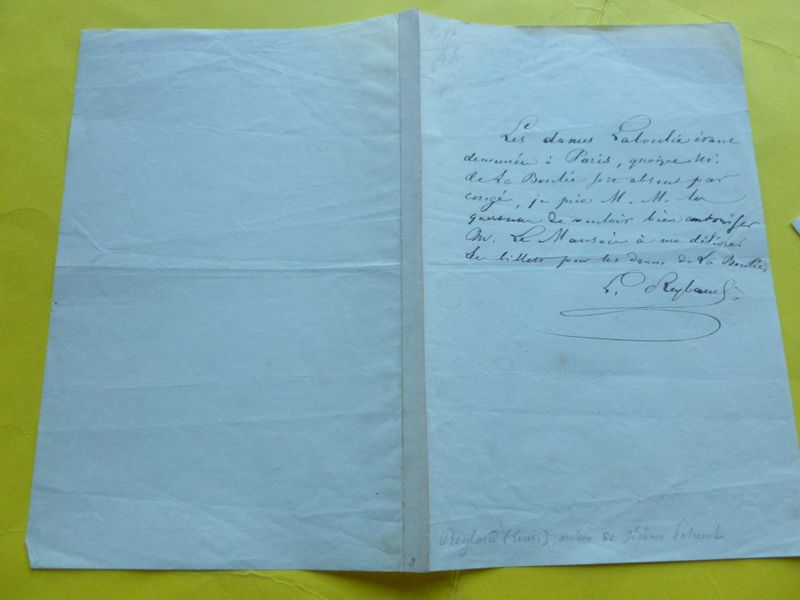 Les dames Laboulie étant
demeurée à Paris, quoique Mr.
de La Boulie soit absent par
congé, je prie M. M. les
questeurs de vouloir bien autoriser
Mr. Le Mansois à me délivrer
les billets pour les dames de La Boulie
L. Reybaud
Reybaud (Louis), auteur de Jérôme Paturot